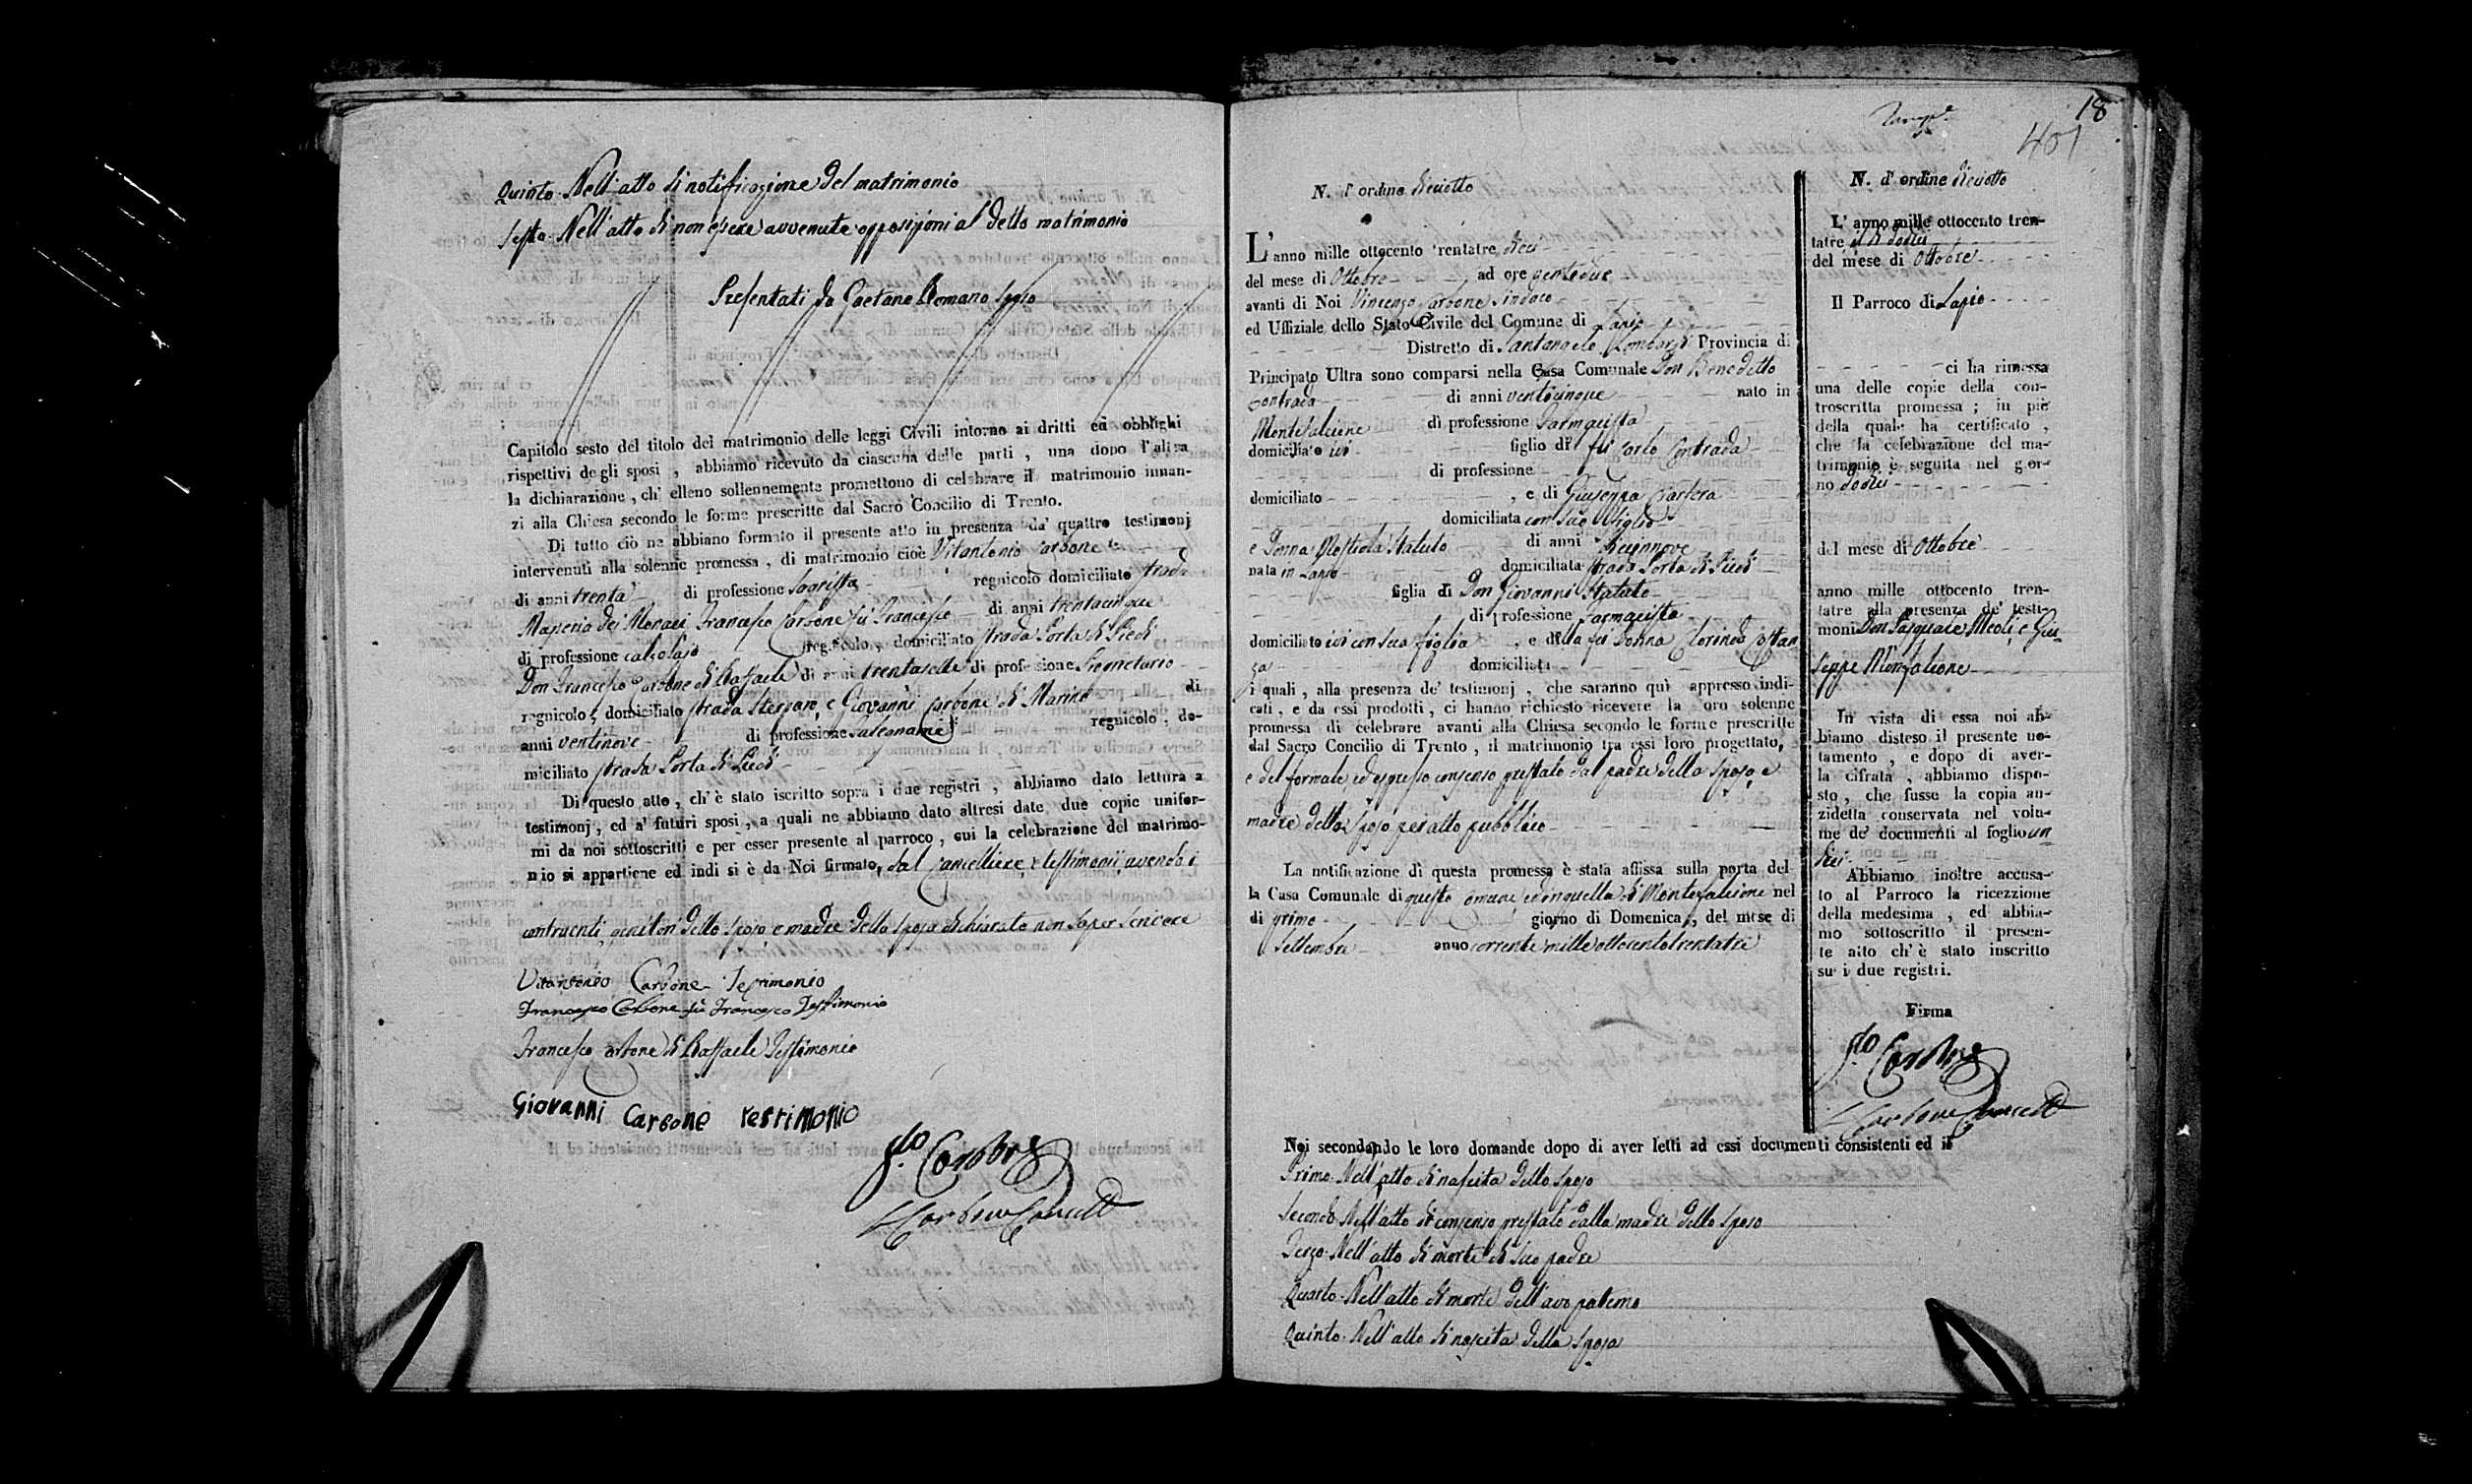 Quinto. Nell'atto di notificazione del matrimonio
Sesto. Nell'atto di non essere avvenute opposizioni al detto matrimonio
Presentati da Gaetano Romano sposo
Capitolo sesto del titolo del matrimonio delle leggi Civili intorno ai dritti ed obblighi
rispettivi degli sposi , abbiamo ricevuto da ciascuna delle parti , una dopo l'altra
la dichiarazione , ch' elleno sollennemente promettono di celebrare il matrimonio innan-
zi alla Chiesa secondo le forme prescritte dal Sacro Concilio di Trento.
Di tutto ciò ne abbiano formato il presente atto in presenza da' quattro testimonj
intervenuti alla solenne promessa , di matrimonio cioè Vitantonio Carbone
di anni trenta di professione regnicolo domiciliato strada
Masseria dei Monaci, Francesco Carbone fu Francesco di anni trentacinque
di professione calzolajo regnicolo, domiciliato strada Porta di Piedi
Don Francesco Carbone di Raffaele di anni trentasette di professione
regnicolo, domiciliato strada e Giovanni Carbone di Marino di
anni ventinove di professione falegname regnicolo, do-
miciliato strada Porta di Piedi
Di questo atto , ch'è stato iscritto sopra i due registri , abbiamo dato lettura a
testimonj , ed a' futuri sposi , a quali ne abbiamo dato altresi date due copie unifor-
mi da noi sottoscritti e per esser presente al parroco , cui la celebrazione del matrimo-
nio si appartiene ed indi si è da Noi firmato, dal Cancelliere, e testimonii avendo i
contraenti, genitori dello sposo e madre della sposa dichiarato non saper scrivere
Vitantonio Carbone Testimonio
Francesco Carbone fu Francesco Testimonio
Francesco Carbone di Raffaele Testimonio
Giovanni Carbone testimonio
Carbone
Carbone Cancell
18
401
N. d' ordine dieciotto
L'anno mille ottocento trentatre dieci
del mese di Ottobre ad ore ventidue
avanti di Noi Vincenzo Carbone Sindaco
ed Uffiziale dello Stato Civile del Comune di Lapio
Distretto di Santangelo Lombardi Provincia di
Principato Ultra sono comparsi nella Casa Comunale Don Benedetto
Contrada di anni venticinque nato in
Montefalcione di professione Farmacista
domiciliato ivi figlio di fu Carlo Contrada
di professione
domiciliato , e di Giuseppa
domiciliata con suo figlio
e Donna Mattiola Statuto di anni diciannove
nata in Lapio domiciliata strada Porta di Piedi
figlia di Don Giovanni Statuto
di professione Farmacista
domiciliato ivi con sua figlia , e della fu Donna Clorinda Costan
za domiciliata
i quali , alla presenza de' testimonj , che saranno quì appresso indi-
cati , e da essi prodotti , ci hanno richiesto ricevere la loro solenne
promessa di celebrare avanti alla Chiesa secondo le forme prescritte
dal Sacro Concilio di Trento , il matrimonio tra essi loro progettato,
e del formale, ed espresso consenso prestato dal padre della sposa, e
madre dello sposo per atto pubblico
La notificazione di questa promessa è stata affissa sulla porta del-
la Casa Comunale di questo comune ed in quella di Montefalcione nel
di primo giorno di Domenica, del mese di
Settembre anno corrente mille ottocento trentatre
Noi secondando le loro domande dopo di aver letti ad essi documenti consistenti ed il
Primo. Nell'atto di nascita dello sposo
Secondo. Nell'atto di consenso prestato dalla madre dello sposo
Terzo. Nell'atto di morte di suo padre
Quarto. Nell'atto di morte dell'avo paterno
Quinto. Nell'atto di nascita della sposa
N. d' ordine dieciotto
L' anno mille ottocento tren-
tatre il dì dodici
del mese di Ottobre
Il Parroco di Lapio
ci ha rimessa
una delle copie della con-
troscritta promessa ; in piè
della quale ha certificato ,
che la celebrazione del ma-
trimonio è seguita nel gior-
no dodici
del mese di Ottobre
anno mille ottocento tren-
tatre alla presenza de' testi-
moni Don Pasquale Meoli, e Giu-
seppe Monzalione
In vista di essa noi ab-
biamo disteso il presente no-
tamento , e dopo di aver-
la cifrata , abbiamo dispo-
sto , che fusse la copia an-
zidetta conservata nel volu-
me de' documenti al foglio un-
dici
Abbiamo inoltre accusa-
to al Parroco la ricezzione
della medesima , ed abbia-
mo sottoscritto il presen-
te atto ch'è stato inscritto
su' i due registri.
Firma
Carbone
Carbone Cancell